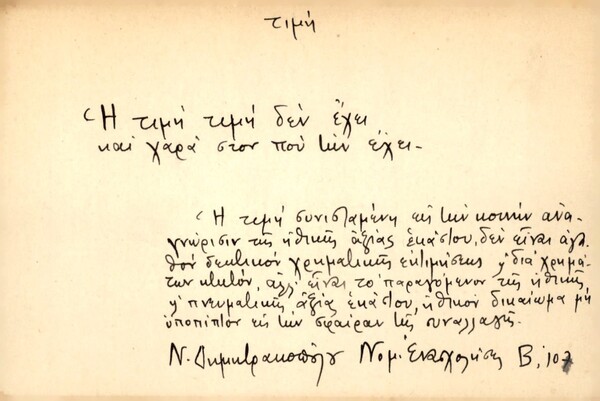 τιμή
Ἡ τιμή τιμή δέν ἔχει
και χαρά στον πού τήν έχει.
Ἡ τιμή συνισταμένη εις τήν κοινήν ἀνα-
γνώρισιν τῆς ἠθικῆς ἀξίας ἑκάστου, δεν εἶναι ἀγα-
θόν δεκτικόν χρηματικῆς εκτιμήσεως ή διά χρημά-
των κτητόν, αλλ' εἶναι το παραγόμενον τῆς ἠθικῆς
ή πνευματικῆς ἀξίας ἑκάστου, ἠθικόν δικαίωμα μή
ὑποπίπτον εις τήν σφαίραν τῆς συναλλαγῆς.
Ν. Δημητρακοπούλου Νομ. Ενασχολήσεις Β, 107